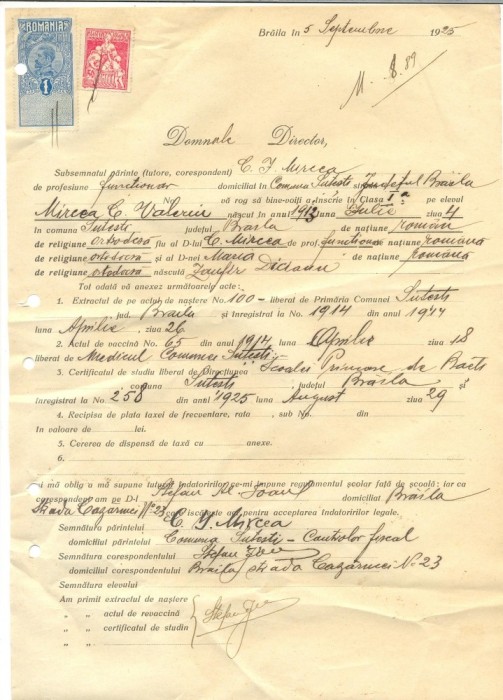 ROMÂNIA
1
Brăila în 5 Septembrie 1925
Domnule Director,
Subsemnatul părinte (tutore, corespondent) C. I. Mircea
de profesiune funcționar domiciliat în Comuna Sutești Județul Brăila
No vă rog să bine-voiți a înscrie în Clasa I a pe elevul
Mircea C. Valeriu născut în anul 1913 luna Iulie ziua 4
în comuna Sutești județul Brăila de națiune român
de religiune ortodoxă fiu al D-lui C. Mircea de prof. funcționar de națiune română
de religiune ortodoxă și al D-nei Maria de națiune română
de religiune ortodoxă născută
Tot odată vă anexez următoarele acte:
1. Extractul de pe actul de naștere No 100 - liberat de Primăria Comunei Sutești
jud. Brăila și înregistrat la No 1914 din anul
luna Aprilie, ziua 26
2. Actul de vaccină No 65 din anul 1914 luna Aprilie ziua 18
liberat de Medicul Comunei Sutești -
3. Certificatul de studiu liberat de Direcțiunea Școalei Primare de Băeți
Sutești județul Brăila și
înregistrat la No 258 din anul 1925 luna August ziua 29
4. Recipisa de plata taxei de frecventare, rata sub No. din
în valoare de lei.
5. Cererea de dispensă de taxă cu anexe.
6.
și mă oblig a mă supune tuturor îndatoririlor ce-mi impune regulamentul școlar față de școală; iar ca
corespondent am pe D-l Ștefan Al. domiciliat Brăila
Strada Cazărmei No 23 care iscălește aci pentru acceptarea îndatoririlor legale.
Semnătura părintelui C. I. Mircea
domiciliul părintelui Comuna Sutești - Controlor fiscal
Semnătura corespondentului Ștefan
domiciliul corespondentului Brăila strada Cazărmei No 23
Semnătura elevului
Am primit extractul de naștere
„ „ actul de revaccină
„ „ certificatul de studiu
„ „
Ștefan